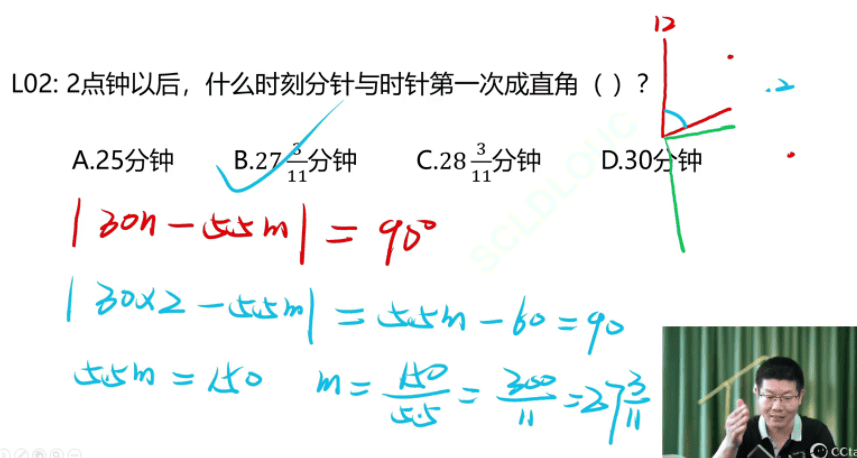 12
L02: 2点钟以后，什么时刻分针与时针第一次成直角（ ）？
.2
A.25分钟 B.27 3/11分钟 C.28 3/11分钟 D.30分钟
|30n-5.5m|=90°
|30×2-5.5m|=5.5m-60=90
5.5m=150 m=150/5.5=300/11=27 3/11
SCLDLOUC
CCta